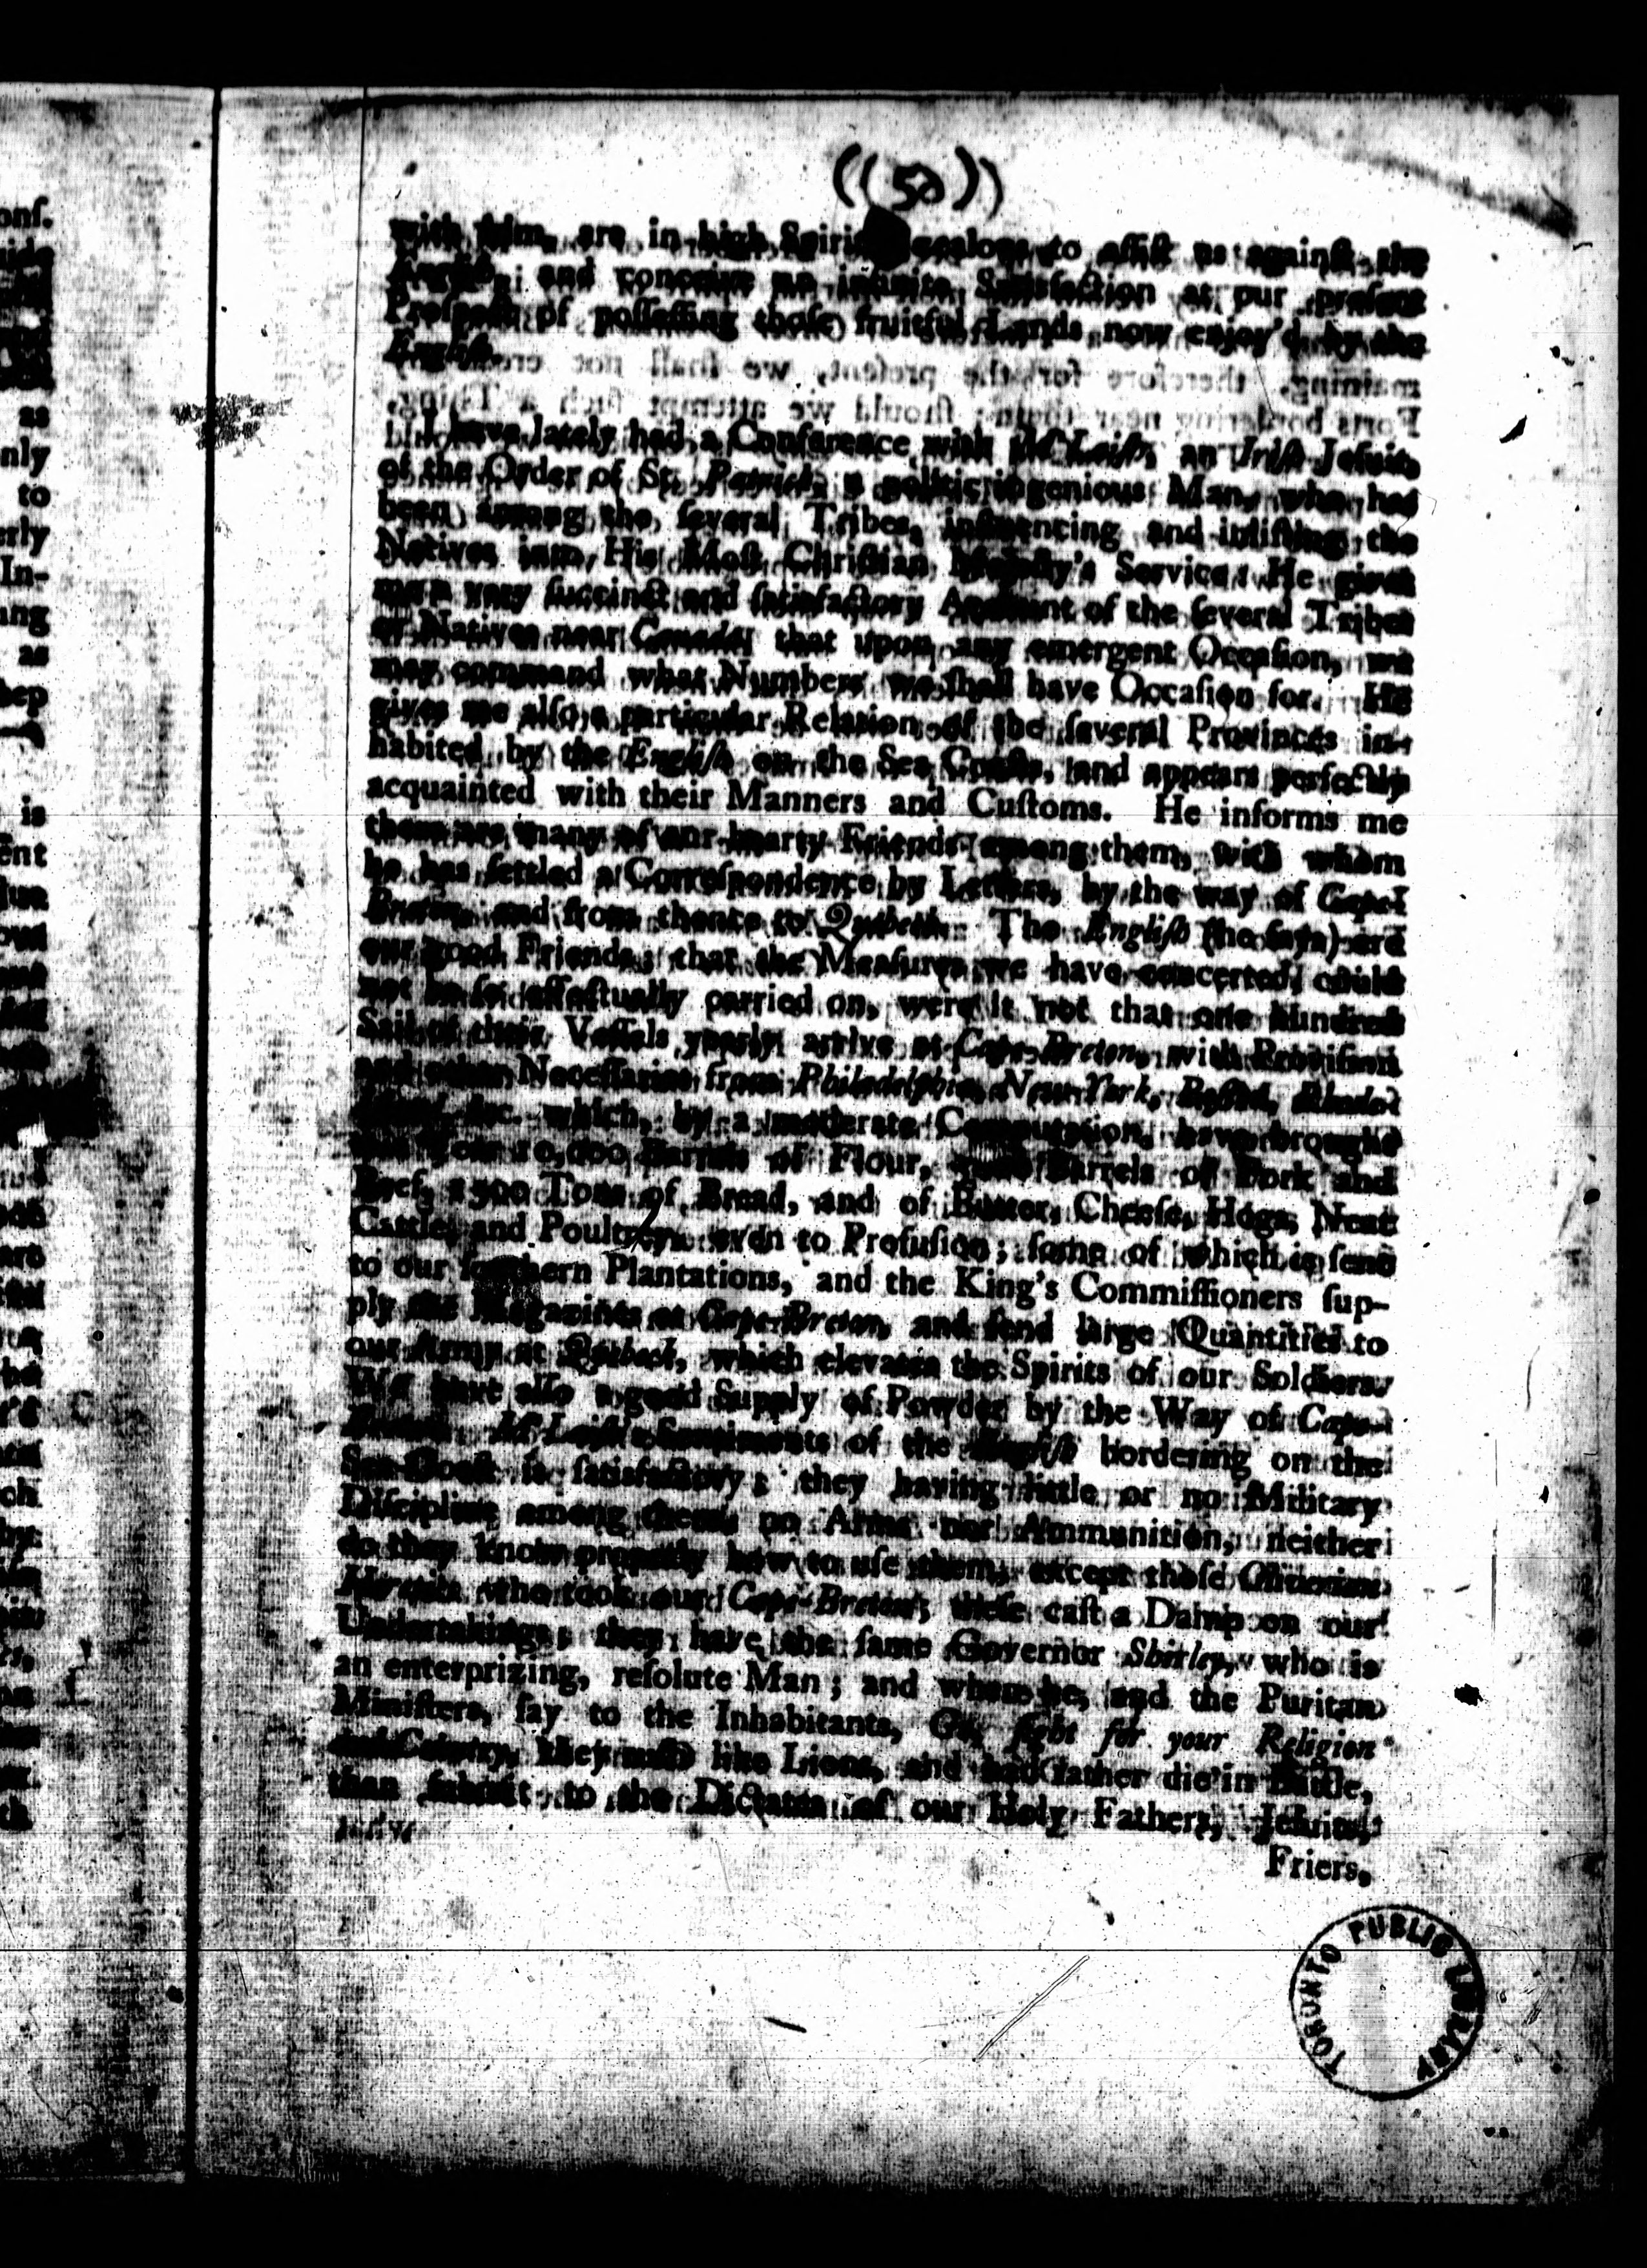 ((50))
with him, are in high Spirits zealous to aſſiſt us againſt the
Engliſh; and conceive an infinite Satisfaction at our preſent
Proſpect of poſſeſſing thoſe fruitful Lands now enjoy'd by the
Engliſh.
I have lately had a Conference with Mc Leiſh, an Iriſh Jeſuit,
of the Order of St. Patrick, a politic ingenious Man, who has
been among the ſeveral Tribes, influencing and inliſting the
Natives into His Moſt Chriſtian Majeſty's Service: He gives
me a very ſuccinct and ſatisfactory Account of the ſeveral Tribes
of Natives near Canada; that upon any emergent Occaſion, we
may command what Numbers we ſhall have Occaſion for. He
gives me alſo a particular Relation of the ſeveral Provinces in-
habited by the Engliſh on the Sea Coaſts, and appears perfectly
acquainted with their Manners and Cuſtoms. He informs me
there are many of our hearty Friends among them, with whom
he has ſettled a Correſpondence by Letters, by the way of Cape-
Breton, and from thence to Quebeck. The Engliſh (he ſays) are
our good Friends; that the Meaſures we have concerted, could
not be ſo effectually carried on, were it not that one hundred
Sail of their Veſſels yearly arrive at Cape-Breton, with Proviſion
and other Neceſſaries from Philadelphia, New-York, Boſton, Rhode-
Iſland, &c. which, by a moderate Computation, have brought
this Year 10,000 Barrels of Flour, Barrels of Pork and
Beef, 1500 Tons of Bread, and of Butter, Cheeſe, Hogs, Neat
Cattle, and Poultrey, even to Profuſion; ſome of which is ſent
to our ſouthern Plantations, and the King's Commiſſioners ſup-
ply the Magazines at Cape-Breton, and ſend large Quantities to
our Army at Quebeck, which elevates the Spirits of our Soldiers.
We have alſo a good Supply of Powder by the Way of Cape-
Breton. Mc Leiſh's Sentiments of the Engliſh bordering on the
Sea-Coaſt is ſatisfactory; they having little or no Military
Diſcipline among them; no Arms nor Ammunition, neither
do they know properly how to uſe them, except thoſe
Hereticks who took our Cape-Breton; theſe caſt a Damp on our
Undertakings; they have the ſame Governor Shirley, who is
an enterprizing, reſolute Man; and when he, and the Puritan
Miniſters, ſay to the Inhabitants, Go, fight for your Religion
and Country, they ruſh like Lions, and had rather die in Battle,
than ſubmit to the Dictates of our Holy Fathers, Jeſuits,
Friers,
TORONTO PUBLIC LIBRARY